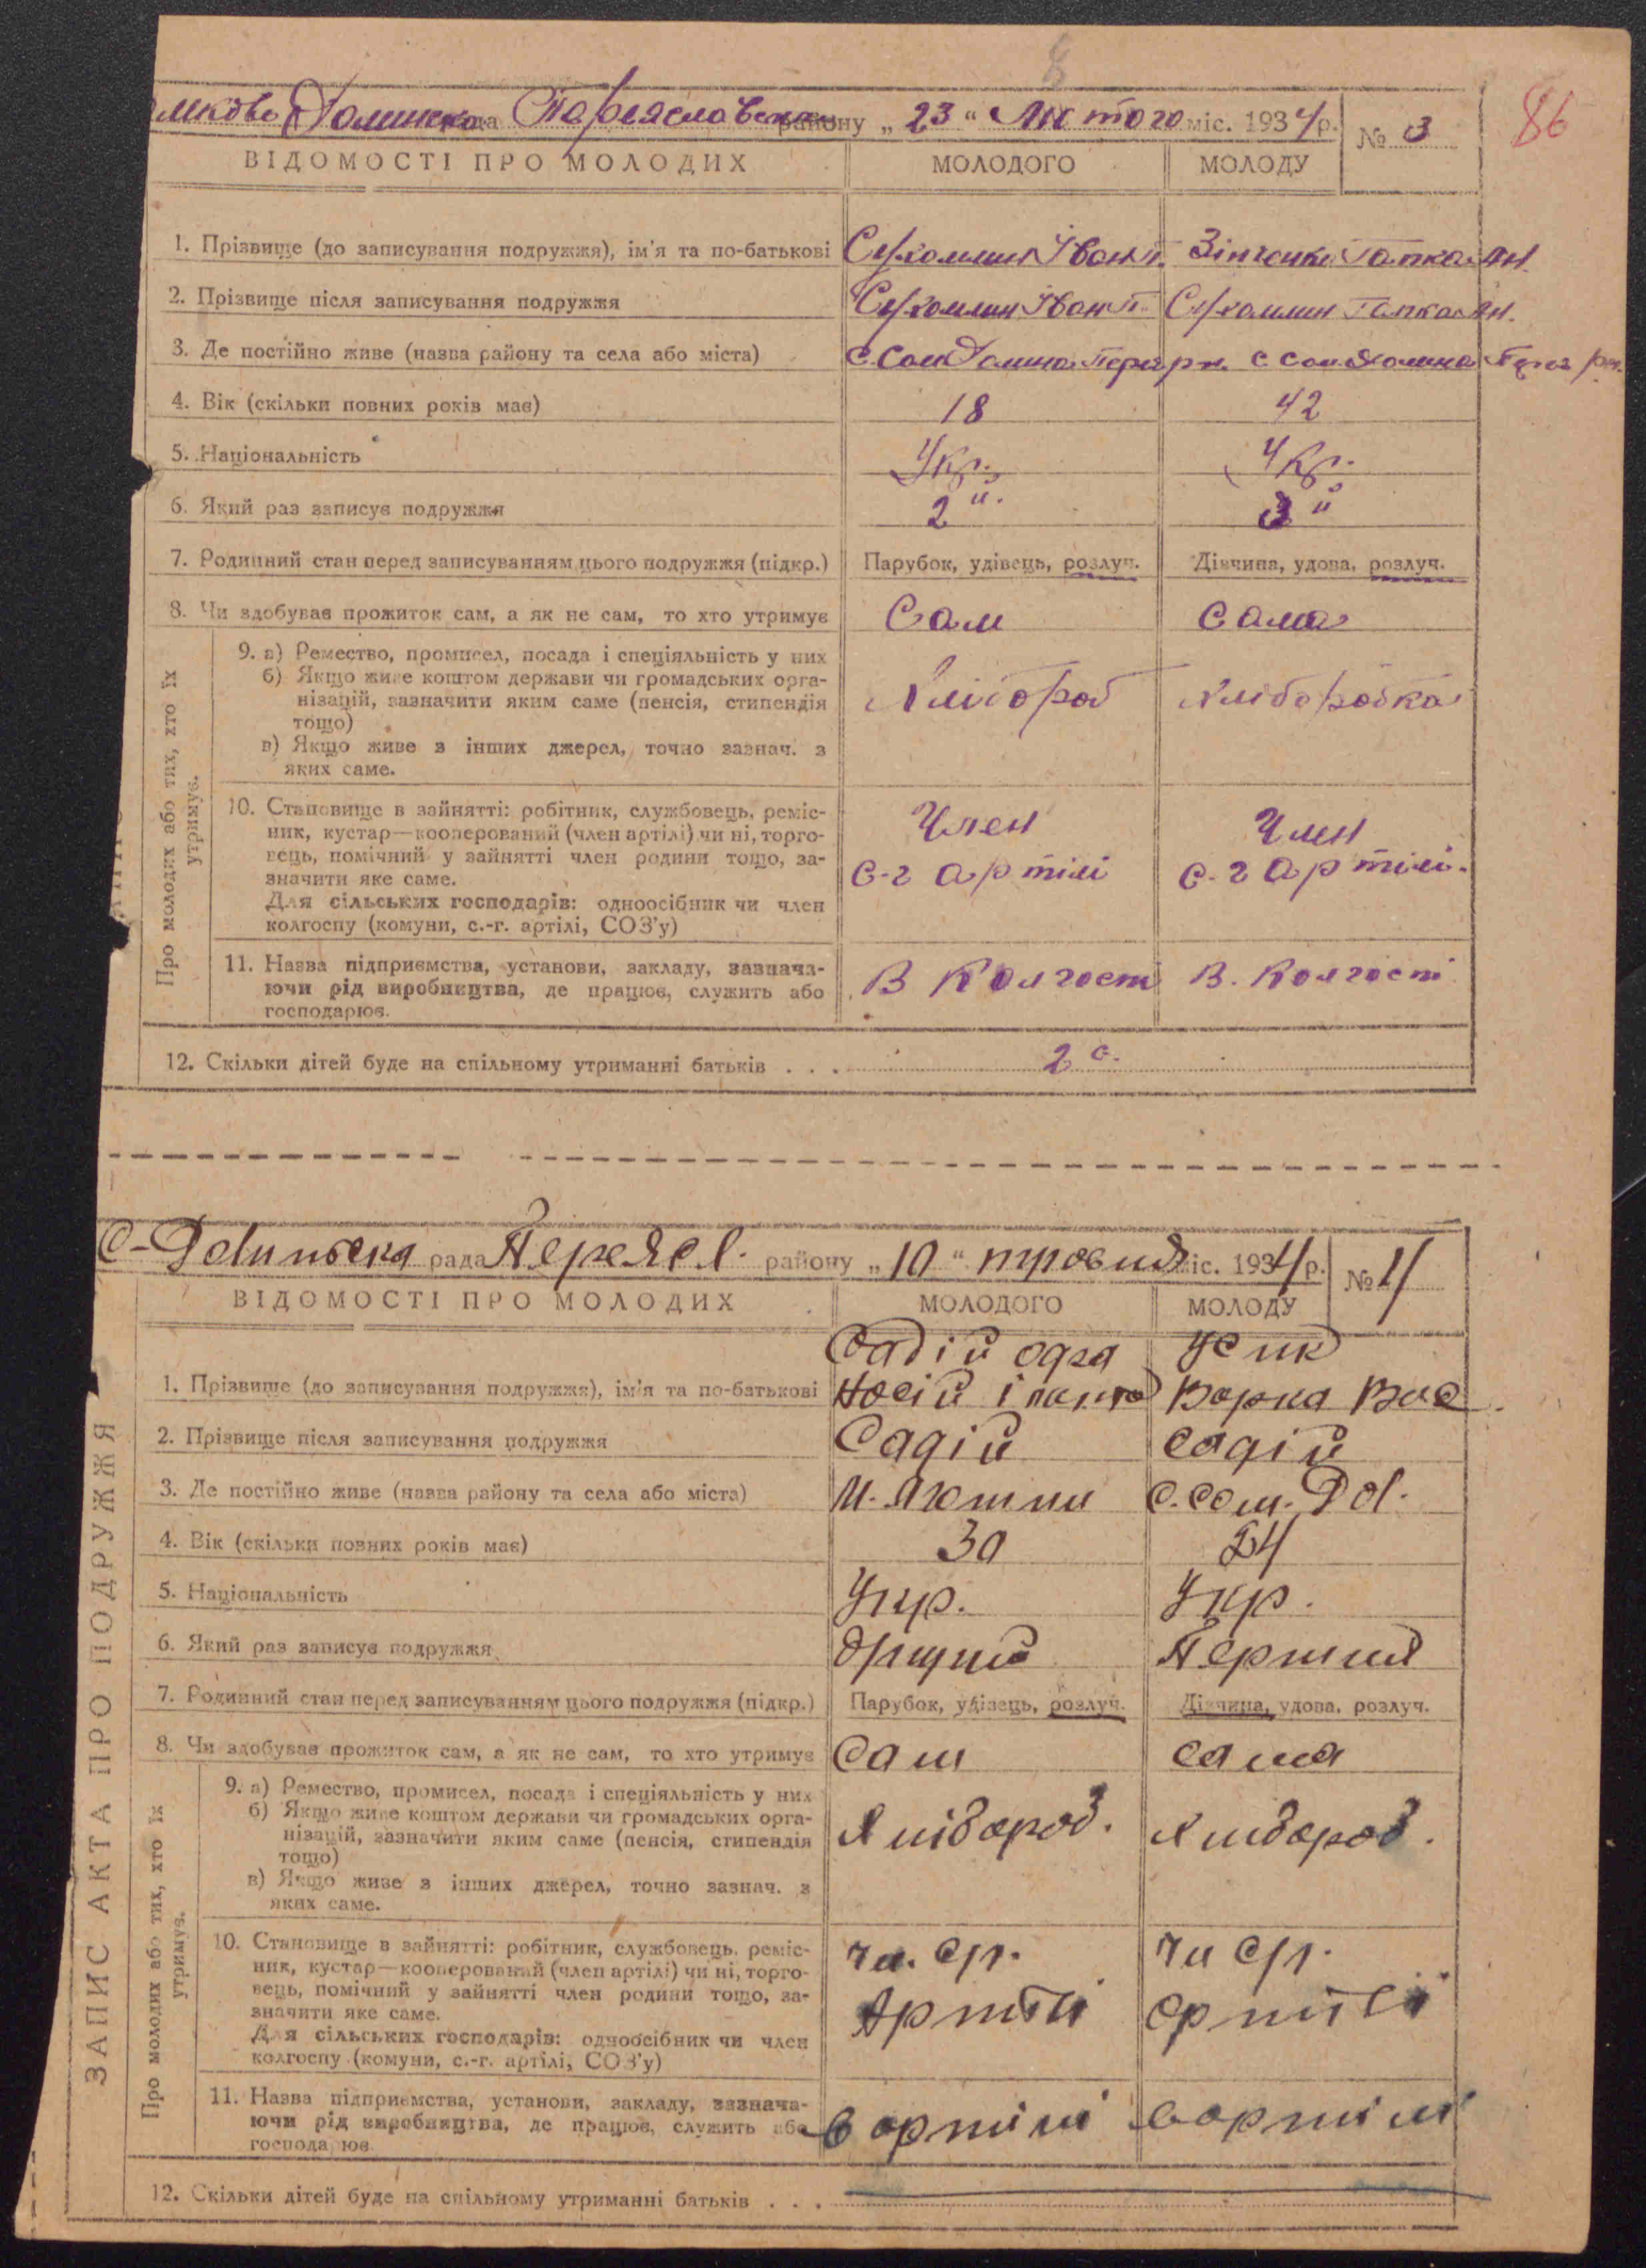 86
мково Долинська рада Переяславського району „ 23 “ Лютого міс. 1934 р. № 3
ВІДОМОСТІ ПРО МОЛОДИХ МОЛОДОГО МОЛОДУ
1. Прізвище (до записування подружжя), ім'я та по-батькові Сухомлин Іван П. Зінченко Гапка Ан.
2. Прізвище після записування подружжя Сухомлин Іван П. Сухомлин Гапка Ан.
3. Де постійно живе (назва району та села або міста) с. Сом Долина Переяс рн. с Сом. Долина Переяс рн.
4. Вік (скільки повних років має) 18 42
5. Національність Укр. Укр.
6. Який раз записує подружжя 2й. 3й
7. Родинний стан перед записуванням цього подружжя (підкр.) Парубок, удівець, розлуч. Дівчина, удова, розлуч.
8. Чи здобував прожиток сам, а як не сам, то хто утримує Сам Сама
Про молодих або тих, хто їх утримує.
9. а) Ремество, промисел, посада і спеціяльність у них
б) Якщо живе коштом держави чи громадських орга-
нізацій, зазначити яким саме (пенсія, стипендія Хлібороб Хліборобка
тощо)
в) Якщо живе з інших джерел, точно зазнач. з
яких саме.
10. Становище в зайнятті: робітник, службовець, реміс- Член Член
ник, кустар—кооперований (член артілі) чи ні, торго-
вець, помічний у зайнятті член родини тощо, за-
значити яке саме. с-г артілі с-г артілі.
Для сільських господарів: одноосібник чи член
колгоспу (комуни, с.-г. артілі, СОЗ'у)
11. Назва підприємства, установи, закладу, зазнача-
ючи рід виробництва, де працює, служить або В Колгоспі В. Колгоспі
господарює.
12. Скільки дітей буде на спільному утриманні батьків . . . 2 є.
С-Долинська рада Переясл. району „ 10 “ травня міс. 1934 р. № 4
ВІДОМОСТІ ПРО МОЛОДИХ МОЛОДОГО МОЛОДУ
Садій Усик
1. Прізвище (до записування подружжя), ім'я та по-батькові Варка Вас.
2. Прізвище після записування подружжя Садій Садій
3. Де постійно живе (назва району та села або міста) с. Сом. Дол.
4. Вік (скільки повних років має) 30 24
5. Національність Укр. Укр.
6. Який раз записує подружжя Другий Перший
7. Родинний стан перед записуванням цього подружжя (підкр.) Парубок, удівець, розлуч. Дівчина, удова, розлуч.
8. Чи здобував прожиток сам, а як не сам, то хто утримує Сам сама
ЗАПИС АКТА ПРО ПОДРУЖЖЯ
Про молодих або тих, хто їх утримує.
9. а) Ремество, промисел, посада і спеціяльність у них
б) Якщо живе коштом держави чи громадських орга-
нізацій, зазначити яким саме (пенсія, стипендія Хлібороб. Хлібороб.
тощо)
в) Якщо живе з інших джерел, точно зазнач. з
яких саме.
10. Становище в зайнятті: робітник, службовець, реміс- чл. чл
ник, кустар—кооперований (член артілі) чи ні, торго-
вець, помічний у зайнятті член родини тощо, за-
значити яке саме. Артілі Артілі
Для сільських господарів: одноосібник чи член
колгоспу (комуни, с.-г. артілі, СОЗ'у)
11. Назва підприємства, установи, закладу, зазнача-
ючи рід виробництва, де працює, служить або в артілі в артілі
господарює
12. Скільки дітей буде на спільному утриманні батьків . . .